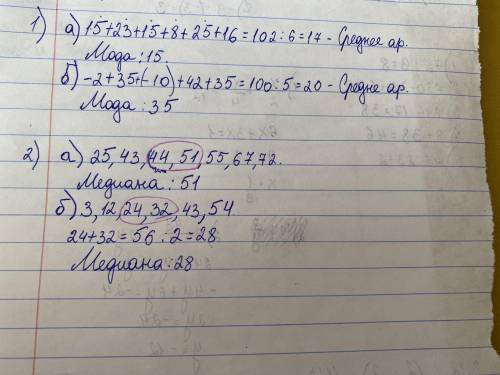 1) а) 15+23+15+8+25+16=102:6=17 - Среднее ар.
Мода: 15.
б) -2+35+(-10)+42+35=100:5=20 - Среднее ар.
Мода: 35
2) а) 25, 43, 44, 51, 55, 67, 72.
Медиана: 51
б) 3, 12, 24, 32, 43, 54
24+32=56:2=28
Медиана: 28